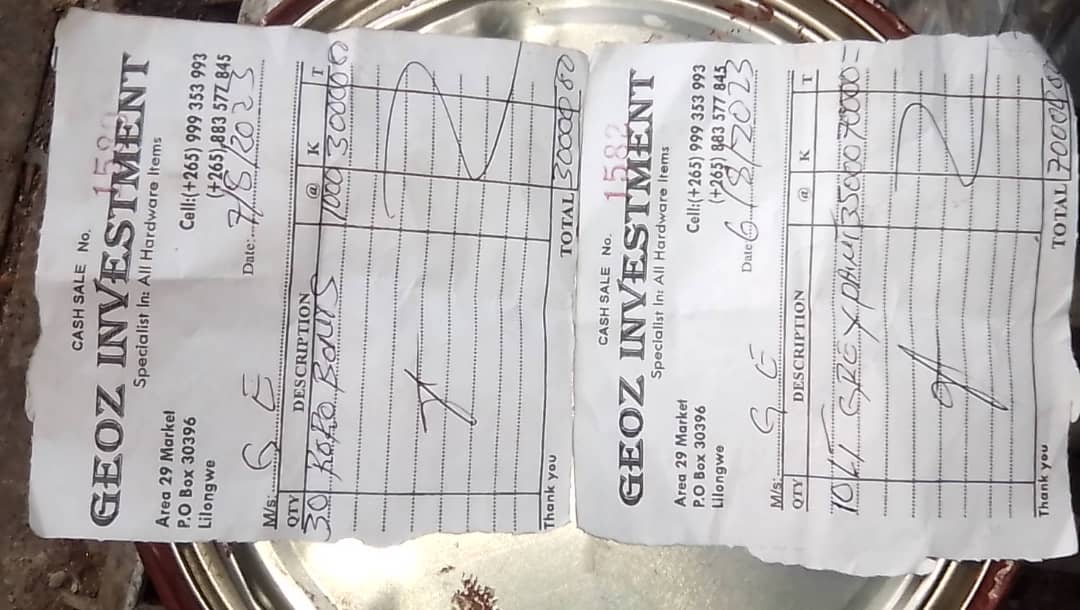 CASH SALE No.
GEOZ INVESTMENT
Specialist In: All Hardware Items
Area 29 Market
P.O Box 30396
Lilongwe
Cell:(+265) 999 353 993
(+265) 883 577 845
Date: 7/8/2023
M/s: G E
QTY DESCRIPTION @ K T
30 1000 30000 00
TOTAL 30000 00
Thank you
CASH SALE No. 1582
GEOZ INVESTMENT
Specialist In: All Hardware Items
Area 29 Market
P.O Box 30396
Lilongwe
Cell:(+265) 999 353 993
(+265) 883 577 845
Date 6/8/2023
M/s: G E
QTY DESCRIPTION @ K T
GREY PAINT 3500 70000 =
TOTAL 70000 00
Thank you